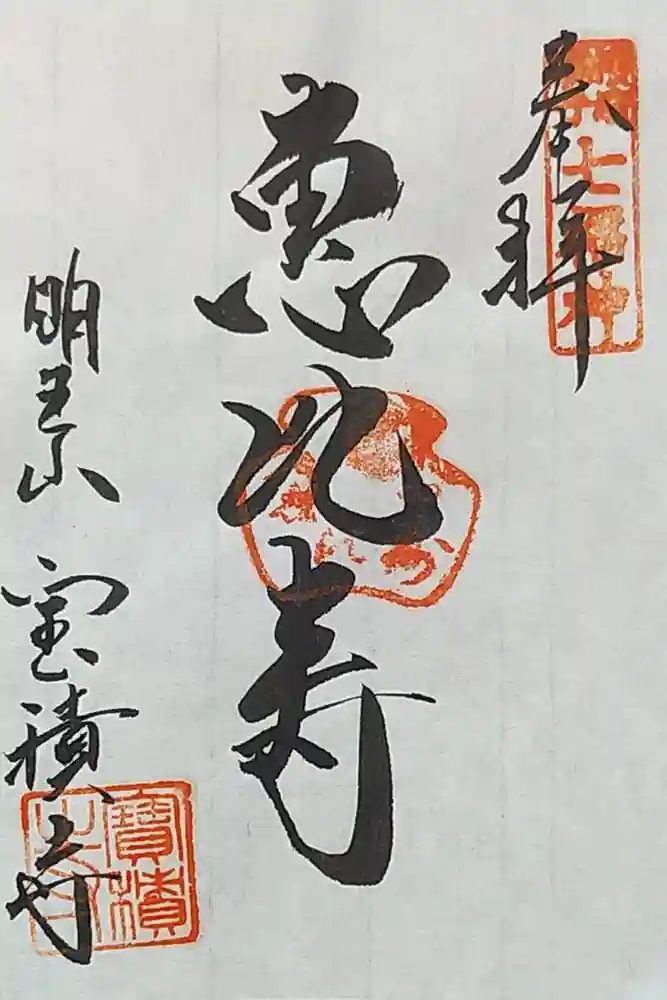 奉拝
七福神
恵比寿
明王山 宝積寺
寶積